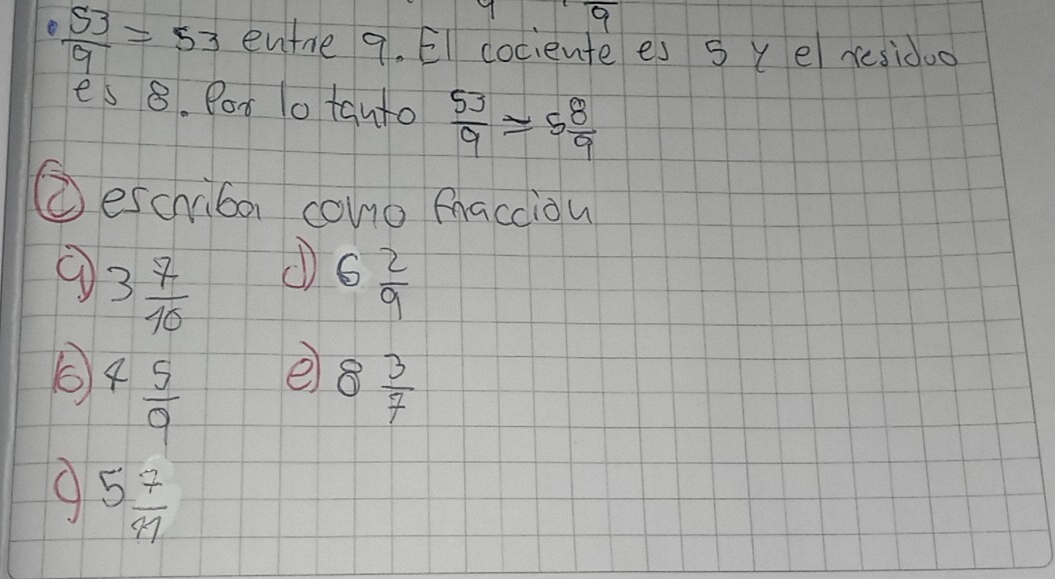 9
• 53/9 = 53 entre 9. El cociente es 5 y el residuo
es 8. Por lo tanto 53/9 = 5 8/9
② escriba como fraccion
a) 3 7/10 d) 6 2/9
b) 4 5/9 e) 8 3/7
c) 5 7/11